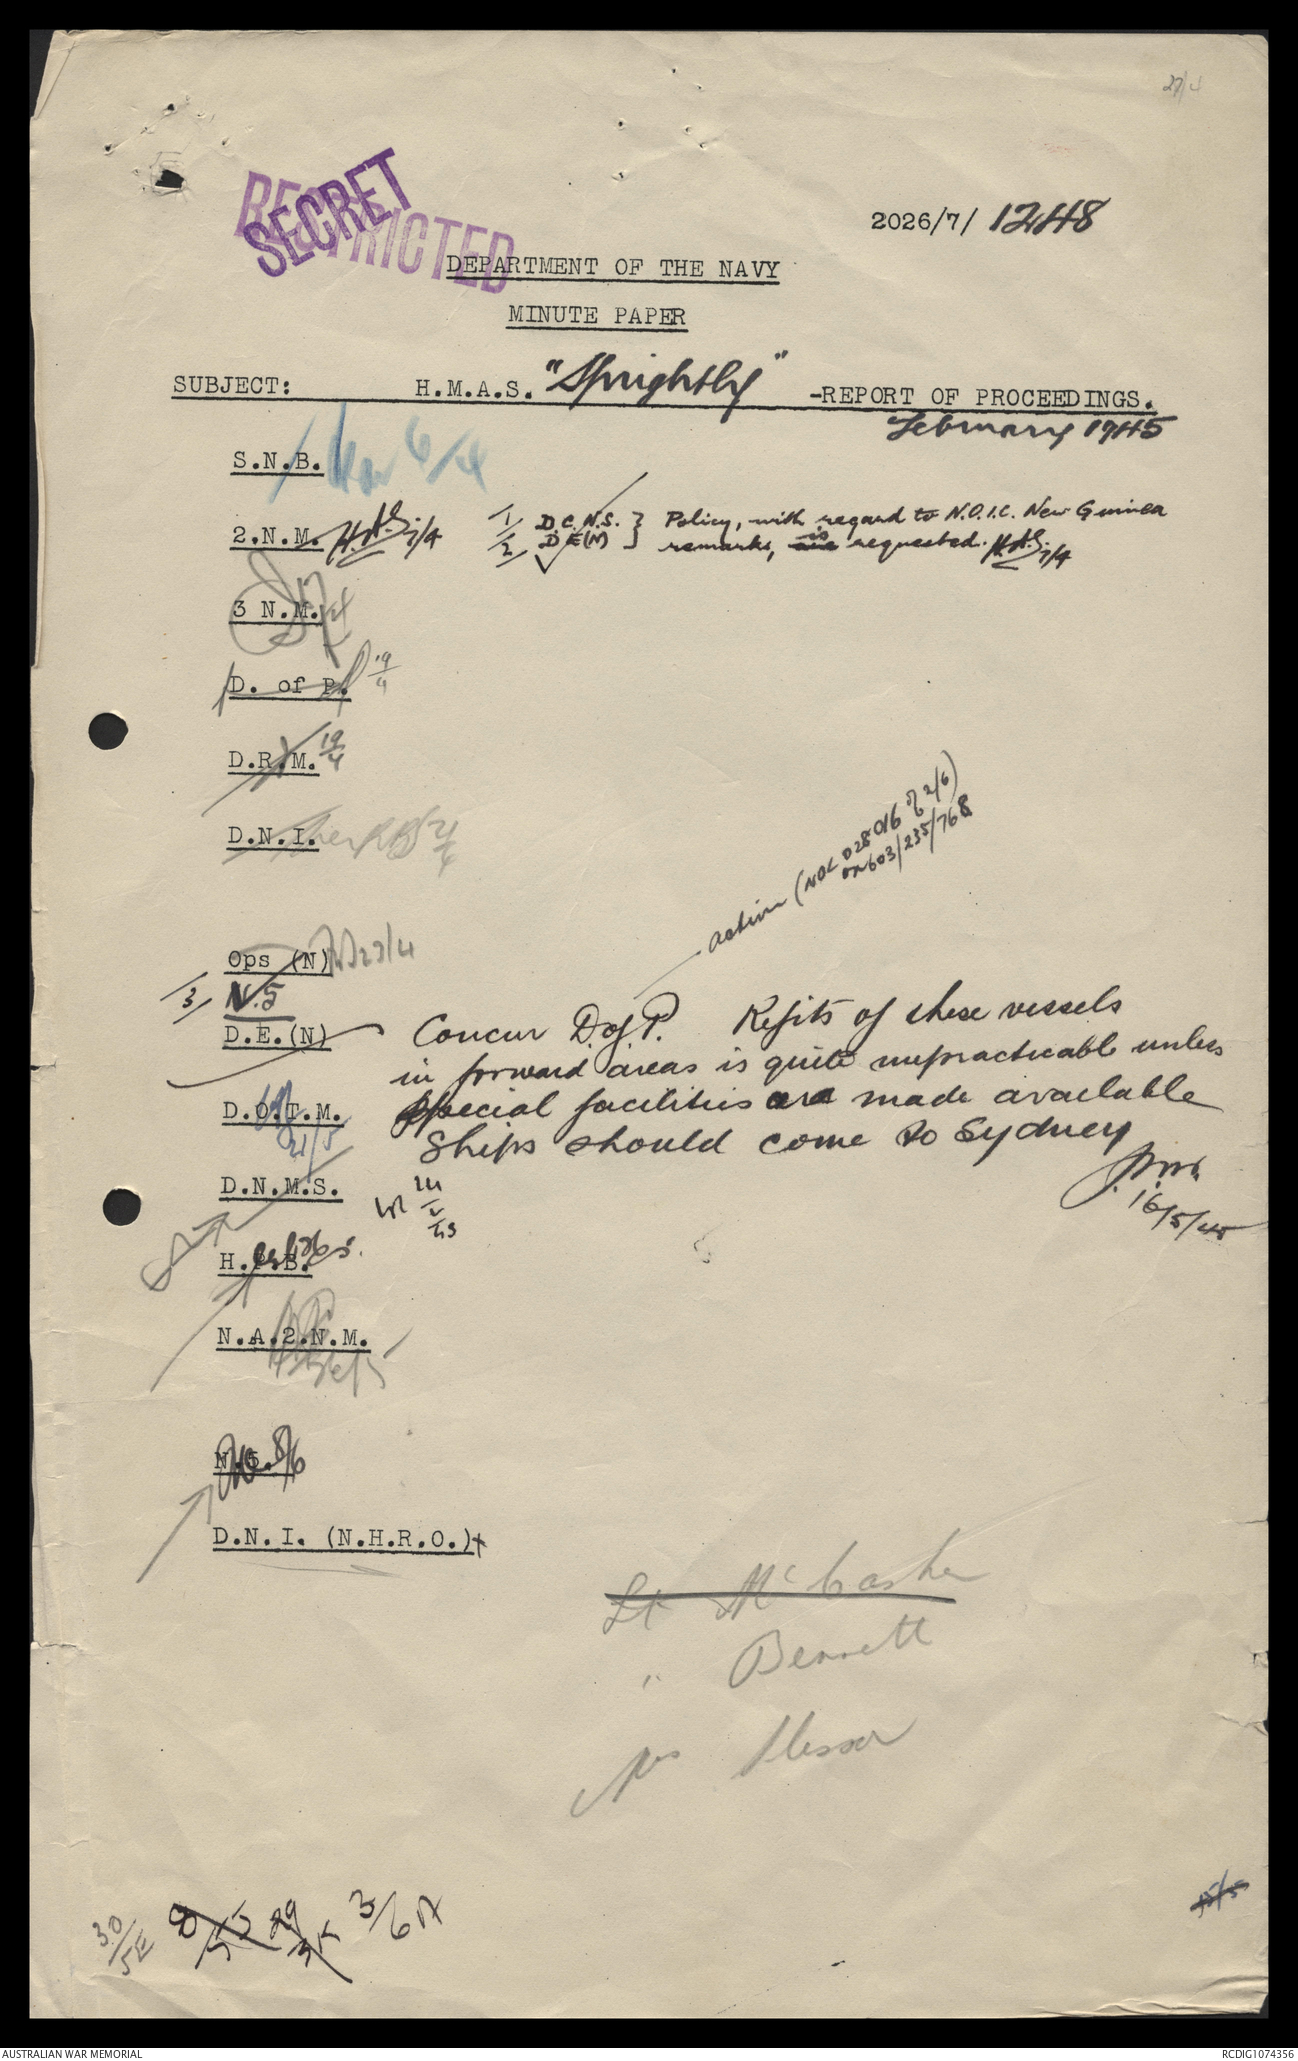 27/4
RESTRICTED
SECRET
2026/7/ 1248
DEPARTMENT OF THE NAVY
MINUTE PAPER
SUBJECT: H.M.A.S. "Sprightly" -REPORT OF PROCEEDINGS.
February 1945
S.N.B. 6/4
2.N.M. H.A.S. 7/4 1/ D.C.N.S. } Policy, with regard to N.O.I.C. New Guinea
2/ D.E(N) } remarks, is requested. H.A.S. 7/4
3 N.M.
D. of P. 19/4
D.R.M. 19/4
D.N.I.
action (NOL 028016 of 2/6)
on 603/235/768
Ops (N) 23/4
3/ N.5
D.E.(N) Concur D. of P. Refits of these vessels
in forward areas is quite unpracticable unless
special facilities are made available
Ships should come to Sydney
16/5/45
D.O.T.M. 21/5
D.N.M.S.
H.P.B.
N.A.2.N.M.
N.5. 8/6
D.N.I. (N.H.R.O.)
Lt
" Bennett
30/5
3/6
15/5
AUSTRALIAN WAR MEMORIAL
RCDIG1074356